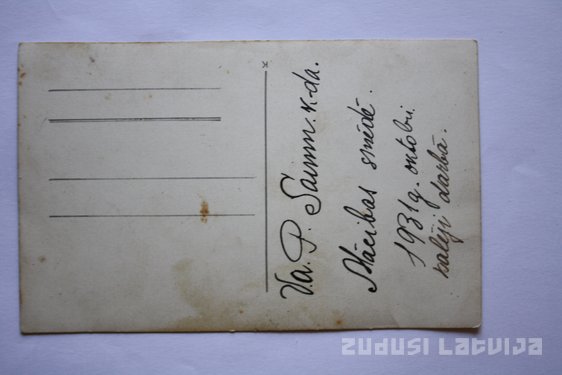 Va. P. Saimn. k-da.
Mācibas smēdē.
1931g. oktobrī.
kalēji darbā.
ZUDUSI LATVIJA